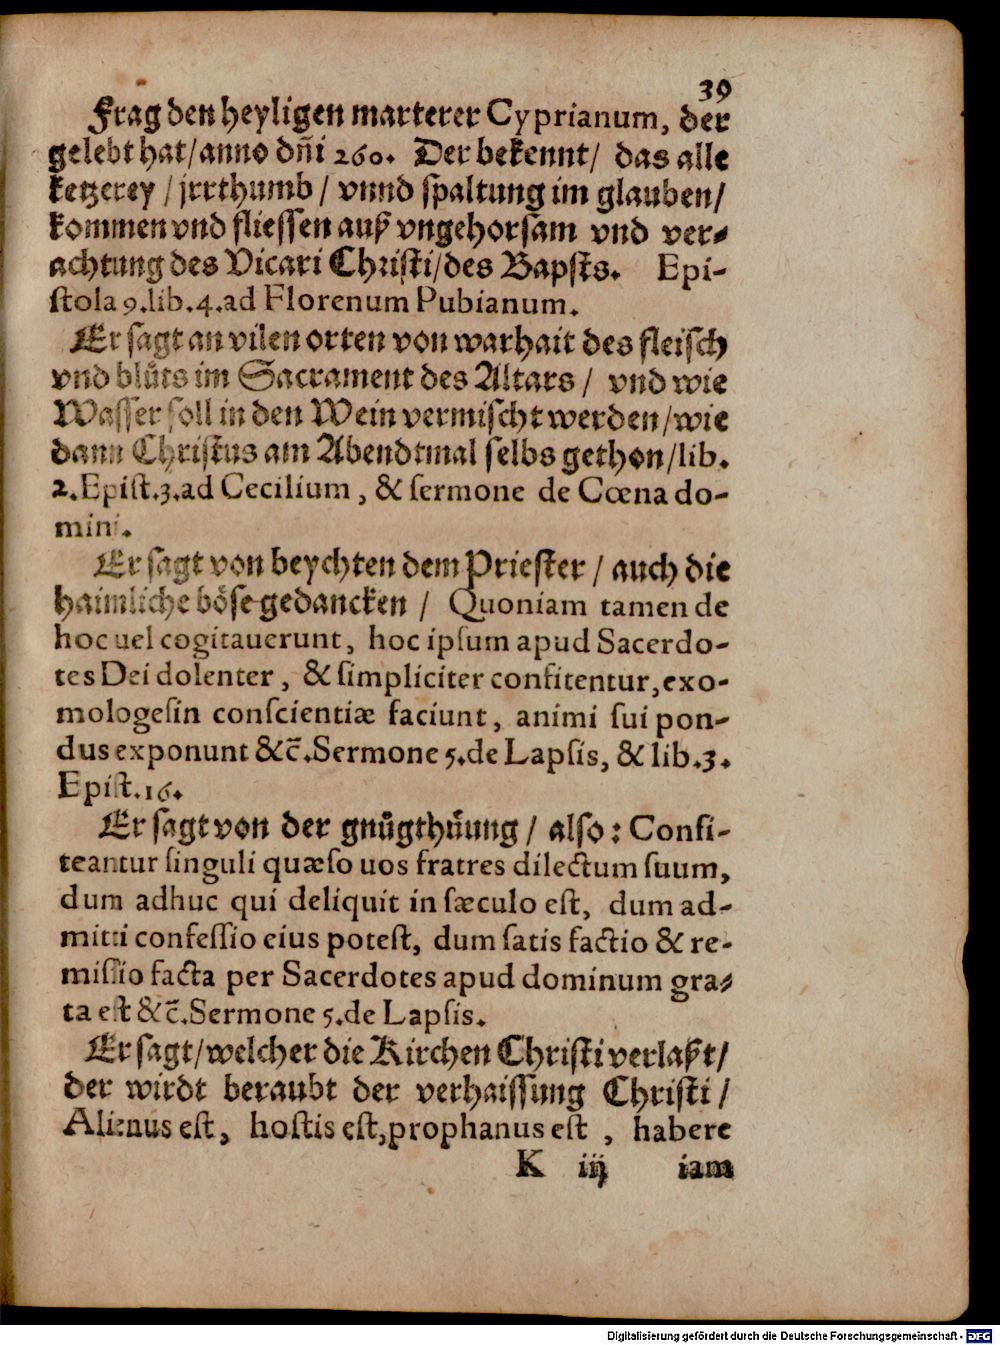 39
Frag den heyligen marterer Cyprianum, der
gelebt hat/anno dn̄i 260. Der bekennt/ das alle
ketzerey / jrrthumb / vnnd spaltung im glauben/
kommen vnd fliessen auß vngehorsam vnd ver⸗
achtung des Vicari Christi/des Bapsts. Epi-
stola 9.lib.4.ad Florenum Pubianum.
Er sagt an vilen orten von warhait des fleisch
vnd blůts im Sacrament des Altars / vnd wie
Wasser soll in den Wein vermischt werden/wie
dann Christus am Abendtmal selbs gethon/lib.
2.Epist.3.ad Cecilium, & sermone de Cœna do-
mini.
Er sagt von beychten dem Priester / auch die
haimliche böse gedancken / Quoniam tamen de
hoc uel cogitauerunt, hoc ipsum apud Sacerdo-
tes Dei dolenter, & simpliciter confitentur,exo-
mologesin conscientiæ faciunt, animi sui pon-
dus exponunt &c̄.Sermone 5.de Lapsis, & lib.3.
Epist.16.
Er sagt von der gnůgthůung / also: Confi-
teantur singuli quæso uos fratres dilectum suum,
dum adhuc qui deliquit in sæculo est, dum ad-
mitti confessio eius potest, dum satis factio & re-
missio facta per Sacerdotes apud dominum gra⸗
ta est &c̄.Sermone 5.de Lapsis.
Er sagt/welcher die Kirchen Christi verlaßt/
der wirdt beraubt der verhaissung Christi/
Alienus est, hostis est,prophanus est , habere
K iij iam
Digitalisierung gefördert durch die Deutsche Forschungsgemeinschaft - DFG